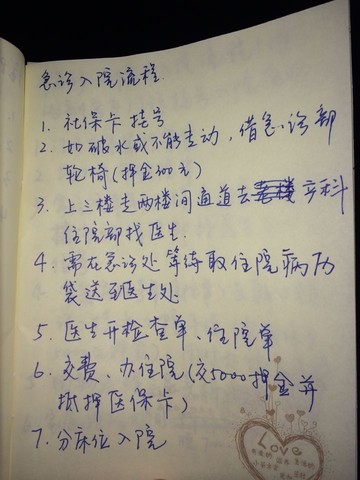 急诊入院流程
1. 社保卡挂号
2. 如破水或不能走动，借急诊部
轮椅(押金300元)
3. 上三楼走两楼间通道去产科
住院部找医生.
4. 需在急诊处等待取住院病历
袋送至医生处
5. 医生开检查单、住院单
6. 交费、办住院(交5000押金并
抵押医保卡)
7. 分床位入院
Love